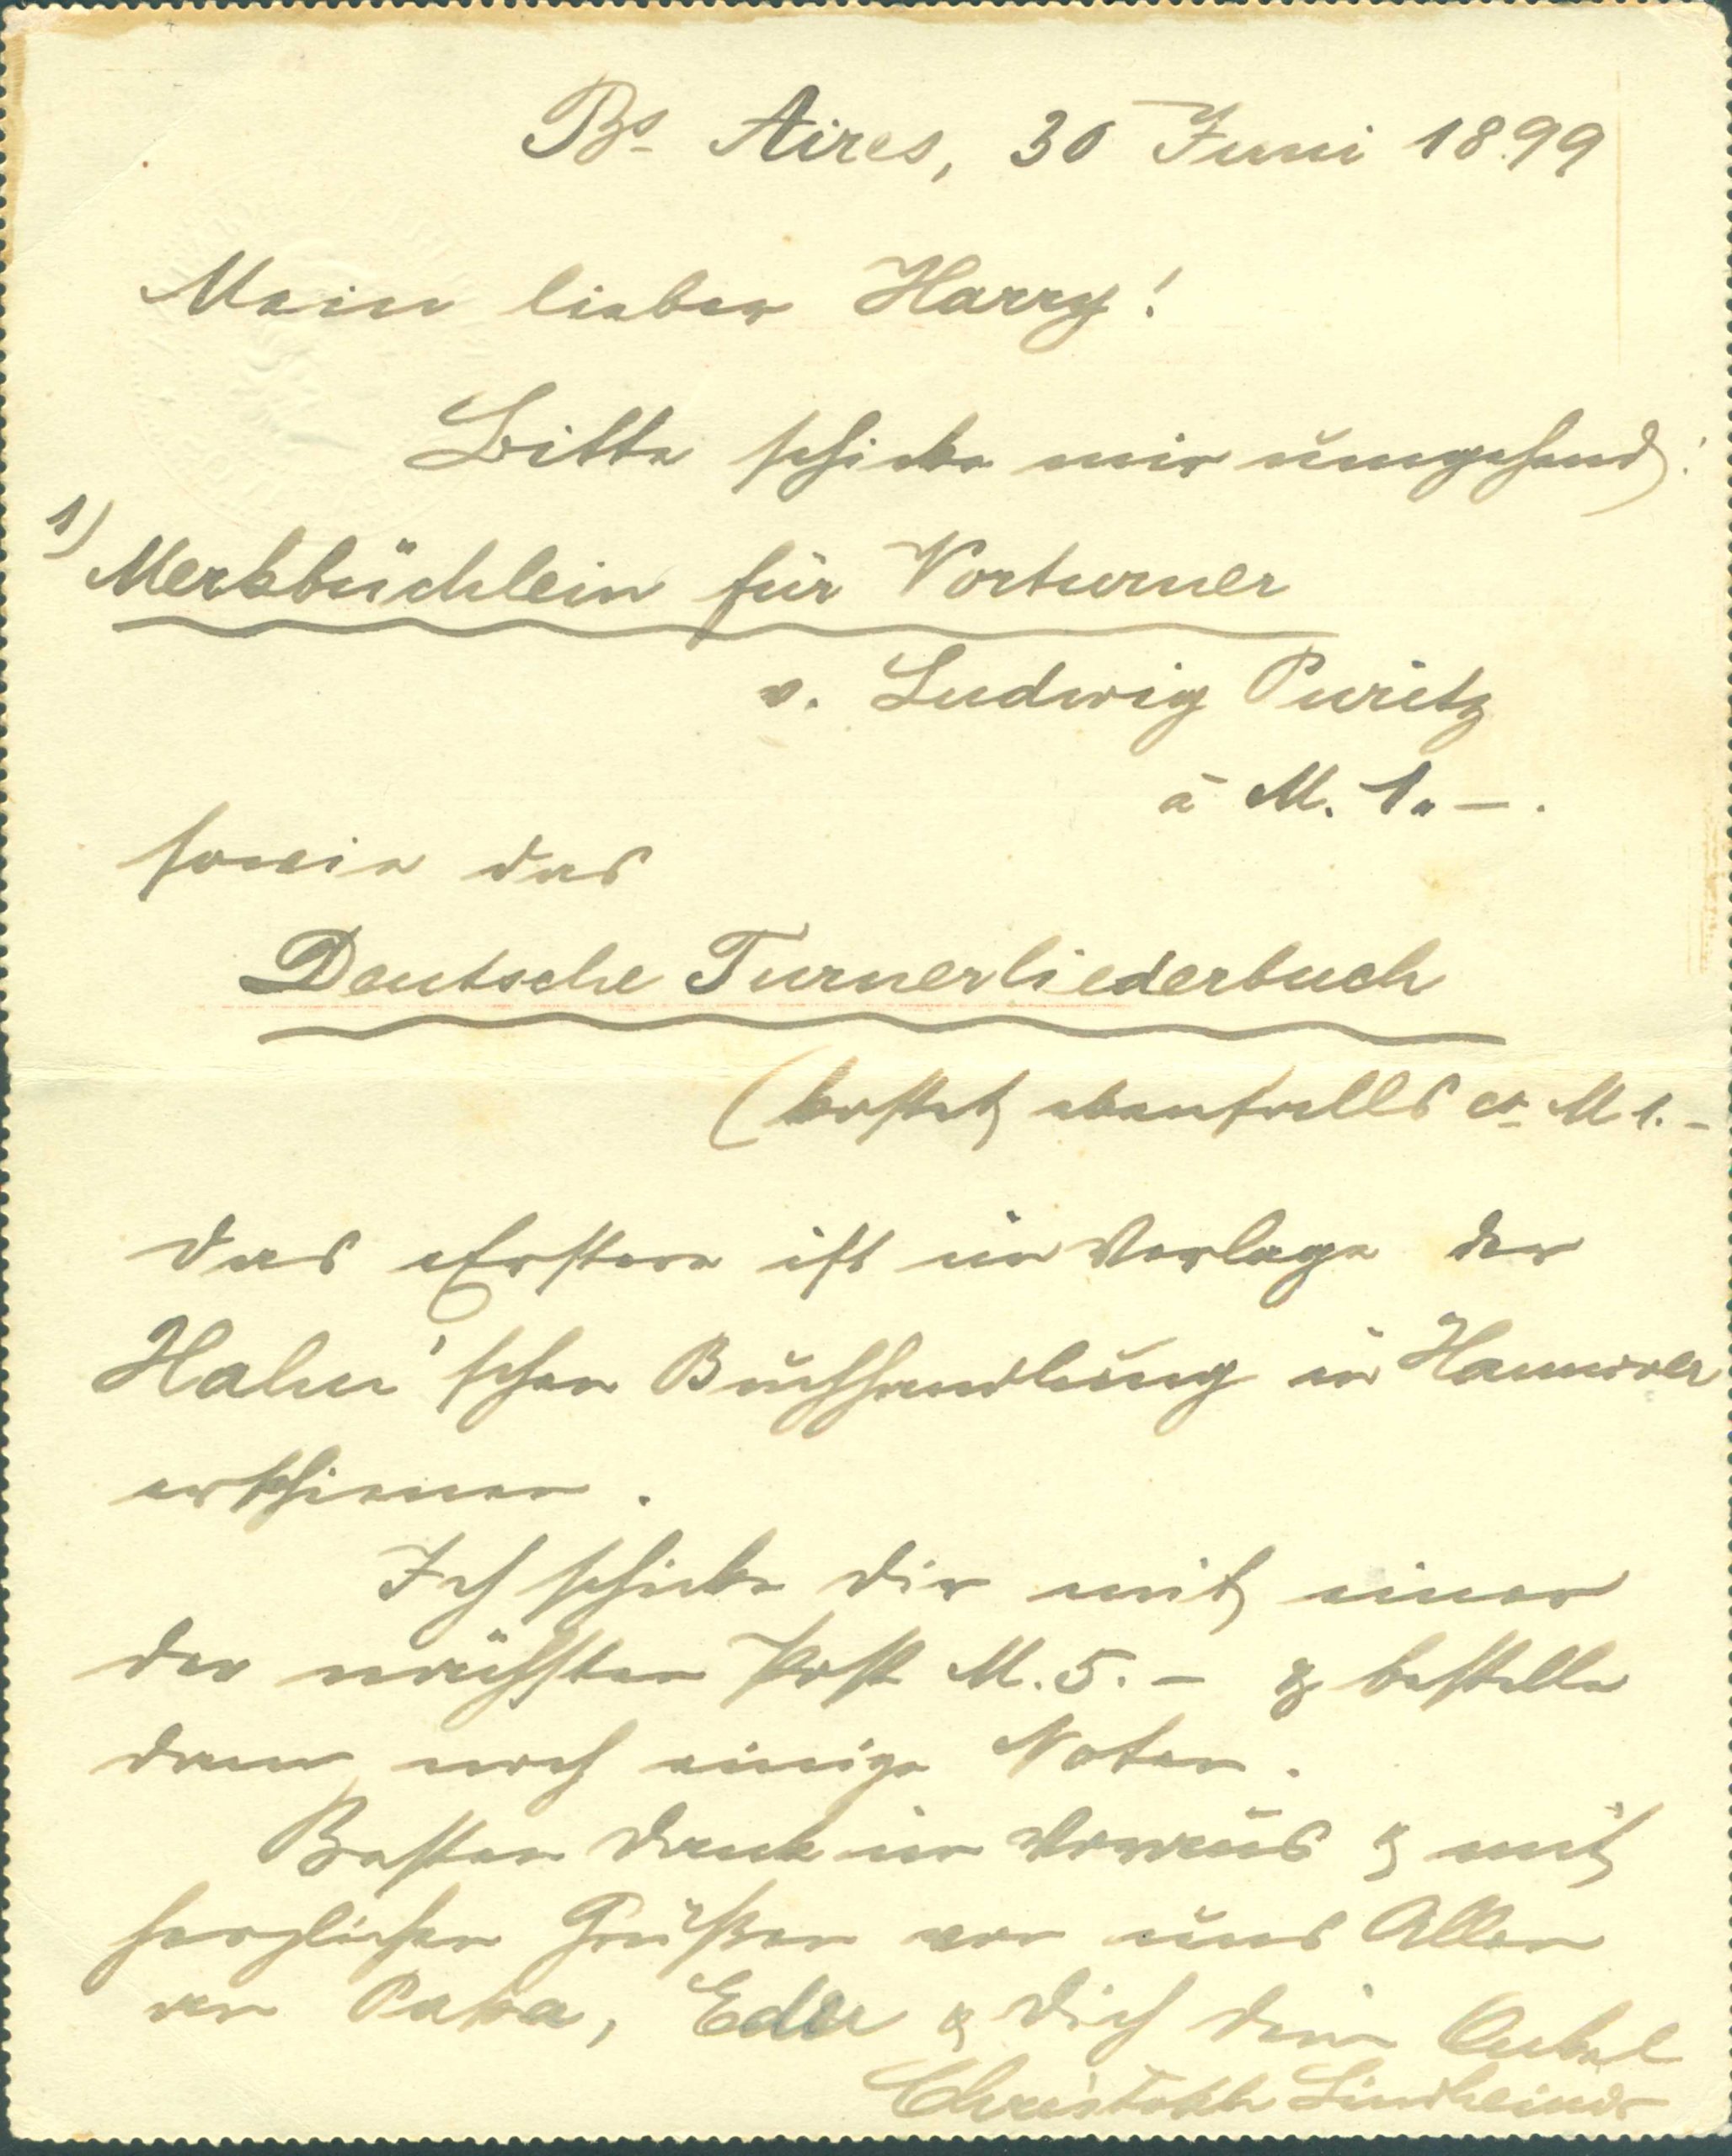 Bs Aires, 30 Juni 1899
Mein lieber Harry!
Bitte schicke mir umgehend:
1) Merkbüchlein für Vorturner
v. Ludwig Puritz
à M. 1.–.
sowie das
Deutsche Turnerliederbuch
(kostet ebenfalls ca M 1.–
Das Erstere ist im Verlage der
Hahn'schen Buchhandlung in Hannover
erschienen.
Ich schicke Dir mit einer
der nächsten Post M. 5.– & bestelle
dann noch einige Noten.
Besten Dank im Voraus & mit
herzlichen Grüßen von uns Allen
an Papa, & Dich Dein Onkel
Christoph